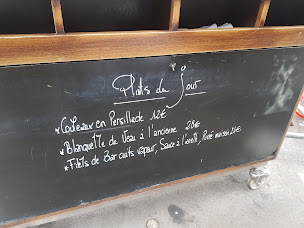 Plats du Jour
* Couteaux en Persillade 12€
* Blanquette de Veau à l'ancienne 20€
* Filets de Bar cuits vapeur, Sauce à l'aneth, Purée maison 21€